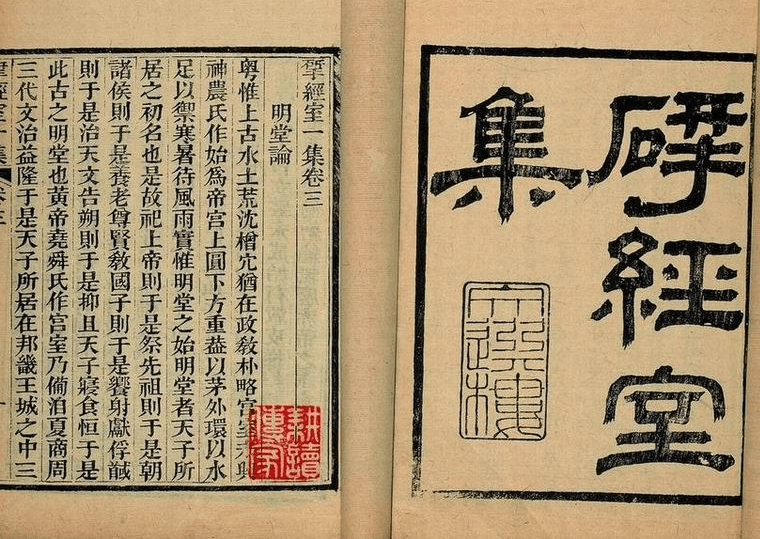 揅經室
集
文選樓
揅經室一集卷三
明堂論
粵惟上古水土荒沈橧穴猶在政敎朴略宮室未興
神農氏作始爲帝宮上圓下方重葢以茅外環以水
足以禦寒暑待風雨實惟明堂之始明堂者天子所
居之初名也是故祀上帝則于是祭先祖則于是朝
諸侯則于是養老尊賢敎國子則于是饗射獻俘馘
則于是治天文告朔則于是抑且天子寢食恒于是
此古之明堂也黃帝堯舜氏作宮室乃僃洎夏商周
三代文治益隆于是天子所居在邦畿王城之中三
揅經室一集 卷三 一
耕讀
傳家